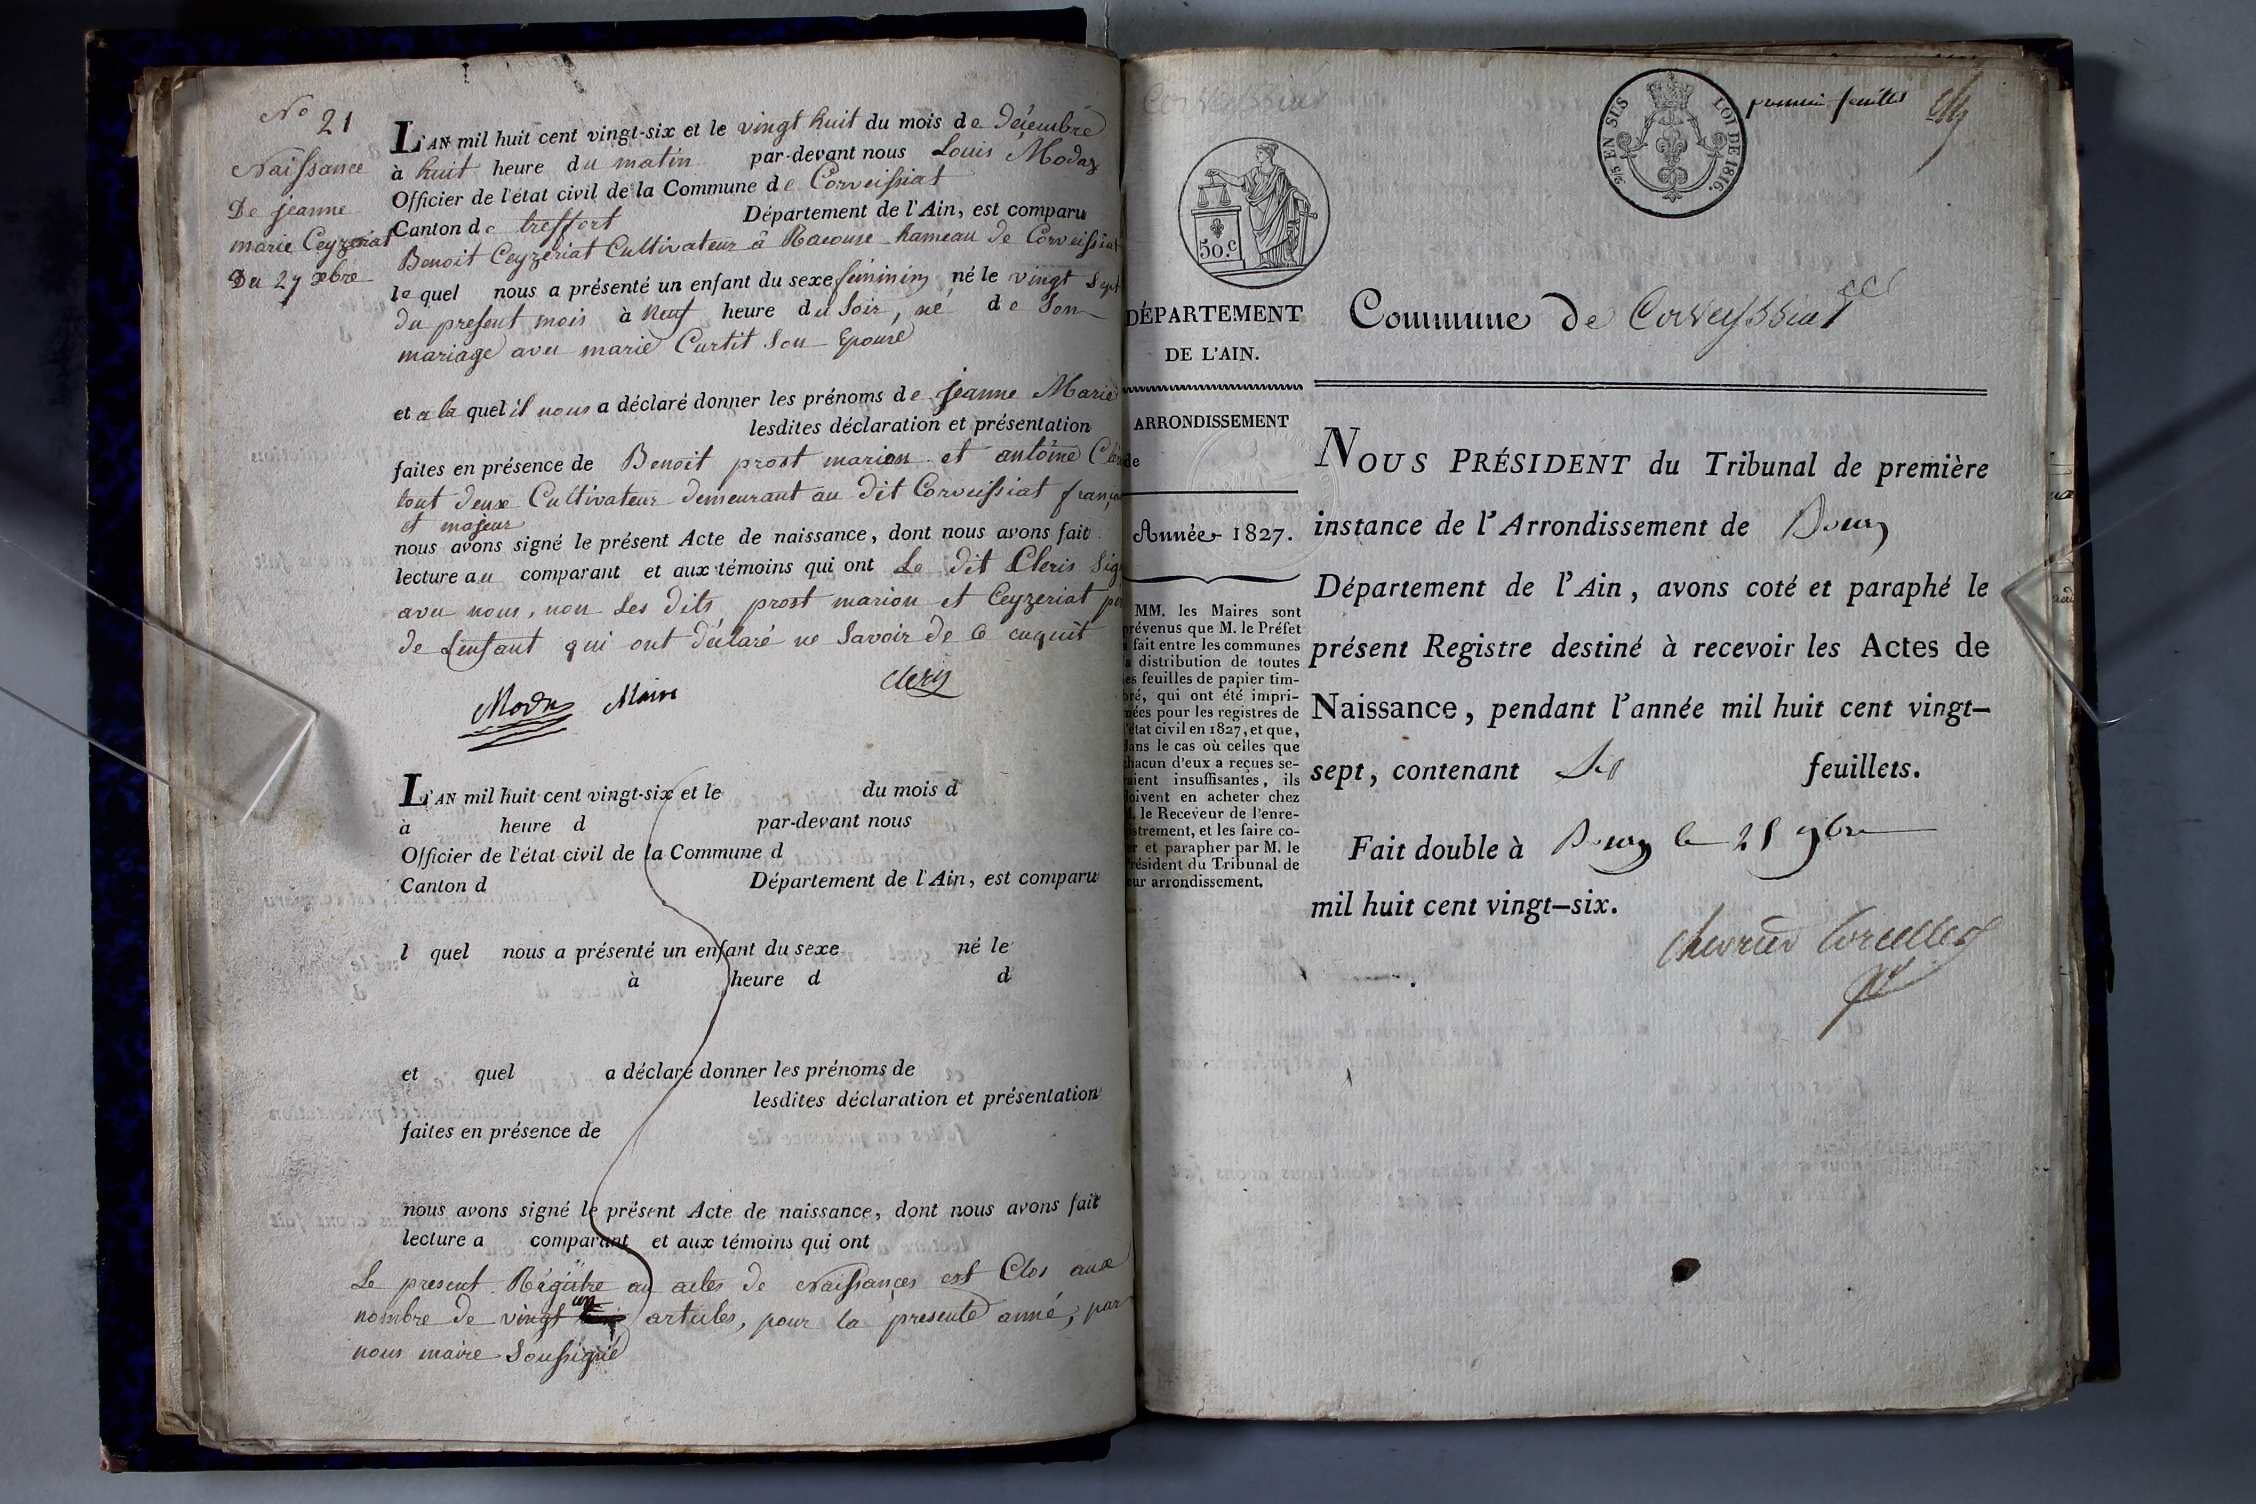 N° 21
Naissance
De jeanne
marie Ceyzeriat
Du 27 xbre
L'AN mil huit cent vingt-six et le vingt huit du mois de Décembre
à huit heure du matin par-devant nous Louis Modas
Officier de l'état civil de la Commune de Corveissiat
Canton de treffort Département de l'Ain, est comparu
Benoit Ceyzeriat Cultivateur à Racouse hameau de Corveissiat
le quel nous a présenté un enfant du sexe féminin, né le vingt Sept
du present mois à Neuf heure du Soir, né de Son
mariage avec marie Curtit Son Epouse
et a la quel il nous a déclaré donner les prénoms de jeanne Marie
lesdites déclaration et présentation
faites en présence de Benoit prost marion et antoine
tout deux Cultivateur demeurant au dit Corveissiat
et majeur
nous avons signé le présent Acte de naissance, dont nous avons fait
lecture au comparant et aux témoins qui ont Le dit Cleris
avec nous, non Les dits prost marion et Ceyzeriat
de Lenfant qui ont déclaré ne Savoir de ce enquit
Maire
L'AN mil huit cent vingt-six et le du mois d
à heure d par-devant nous
Officier de l'état civil de la Commune d
Canton d Département de l'Ain, est comparu
l quel nous a présenté un enfant du sexe né le
à heure d d
et quel a déclaré donner les prénoms de
lesdites déclaration et présentation
faites en présence de
nous avons signé le présent Acte de naissance, dont nous avons fait
lecture a comparant et aux témoins qui ont
Le present Régistre au actes de Naissances est Clos aux
nombre de vingt un articles, pour la presente anné, par
nous maire Soussigné
premier feuillet
5/6 EN SUS LOI DE 1816.
50.c
DÉPARTEMENT
DE L'AIN.
ARRONDISSEMENT
de
Année 1827.
MM. les Maires sont
prévenus que M. le Préfet
a fait entre les communes
la distribution de toutes
les feuilles de papier tim-
bré, qui ont été impri-
mées pour les registres de
l'état civil en 1827, et que,
dans le cas où celles que
chacun d'eux a reçues se-
raient insuffisantes, ils
doivent en acheter chez
M. le Receveur de l'enre-
gistrement, et les faire co-
ter et parapher par M. le
Président du Tribunal de
leur arrondissement.
Commune de Corveyssiat
NOUS PRÉSIDENT du Tribunal de première
instance de l'Arrondissement de Bourg
Département de l'Ain, avons coté et paraphé le
présent Registre destiné à recevoir les Actes de
Naissance, pendant l'année mil huit cent vingt-
sept, contenant feuillets.
Fait double à Bourg le 25 9bre
mil huit cent vingt-six.